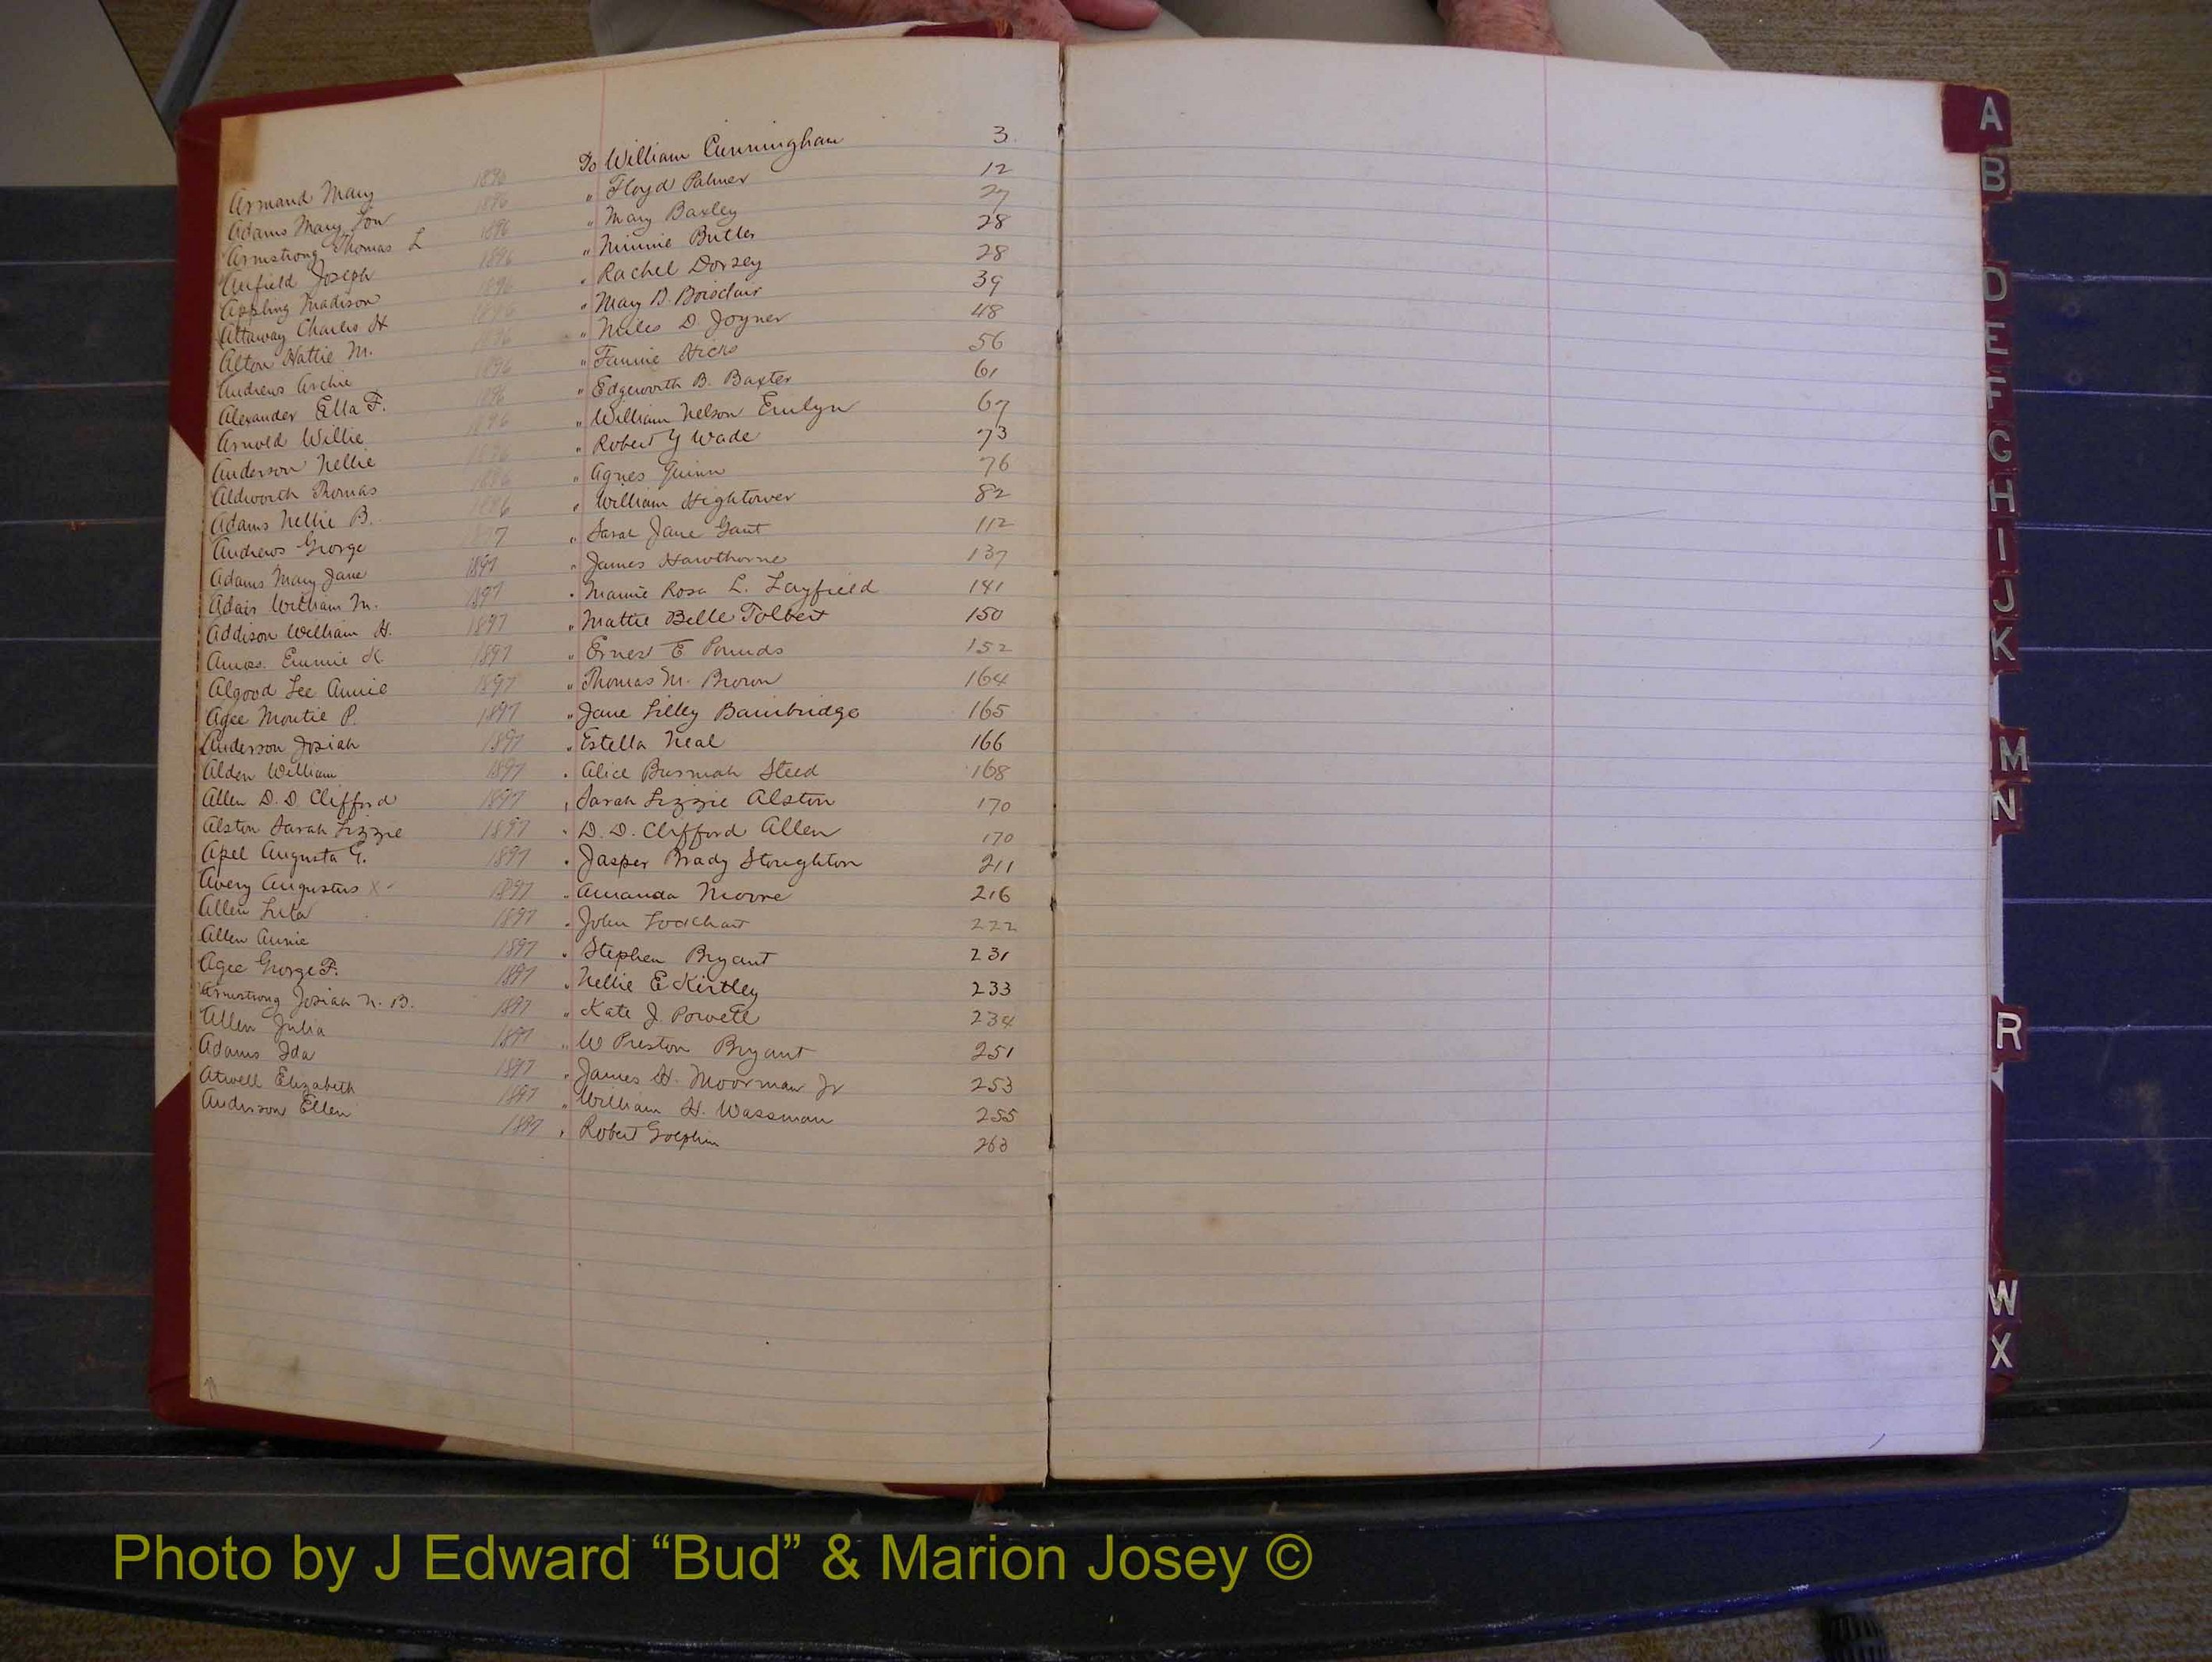 Armand Mary 1896 To William Cunningham 3
Adams Mary Lou 1896 " Floyd Palmer 12
Armstrong Thomas L 1896 " Mary Baxley 27
Anfield Joseph 1896 " Minnie Butler 28
Appling Madison 1896 " Rachel Dorsey 28
Attaway Charles H 1896 " Mary B. Boisclair 39
Alton Hattie M. 1896 " Miles D. Joyner 48
Andrews Archie 1896 " Fannie Hicks 56
Alexander Ella F. 1896 " Edgeworth B. Baxter 61
Arnold Willie 1896 " William Nelson Emlyn 67
Anderson Nellie 1896 " Robert Y Wade 73
Aldworth Thomas 1896 " Agnes Quinn 76
Adams Nellie B. 1896 " William Hightower 82
Andrews George 1897 " Sarah Jane Gant 112
Adams Mary Jane 1897 " James Hawthorne 137
Adair William M. 1897 " Mamie Rosa L. Layfield 141
Addison William H. 1897 " Mattie Belle Tolbert 150
Amos Emmie K. 1897 " Ernest E Pounds 152
Algood Lee Annie 1897 " Thomas M. Brown 164
Agee Montie P. 1897 " Jane Lilley Bainbridge 165
Anderson Josiah 1897 " Estella Neal 166
Alden William 1897 " Alice Burmah Steed 168
Allen D. D. Clifford 1897 " Sarah Lizzie Alston 170
Alston Sarah Lizzie 1897 " D. D. Clifford Allen 170
Apel Augusta G. 1897 " Jasper Brady Stoughton 211
Avery Augustus X 1897 " Amanda Moore 216
Allen Lula 1897 " John Lockhart 222
Allen Annie 1897 " Stephen Bryant 231
Agee George F. 1897 " Nellie E Kirtley 233
Armstrong Josiah N. B. 1897 " Kate J. Powell 234
Allen Julia 1897 " W Preston Bryant 251
Adams Ida 1897 " James H. Moorman Jr 253
Atwell Elizabeth 1897 " William H. Wassman 255
Anderson Ellen 1897 " Robert Golphin 263
A
B
D
E
F
G
H
I
J
K
M
N
R
W
X
Photo by J Edward “Bud” & Marion Josey ©